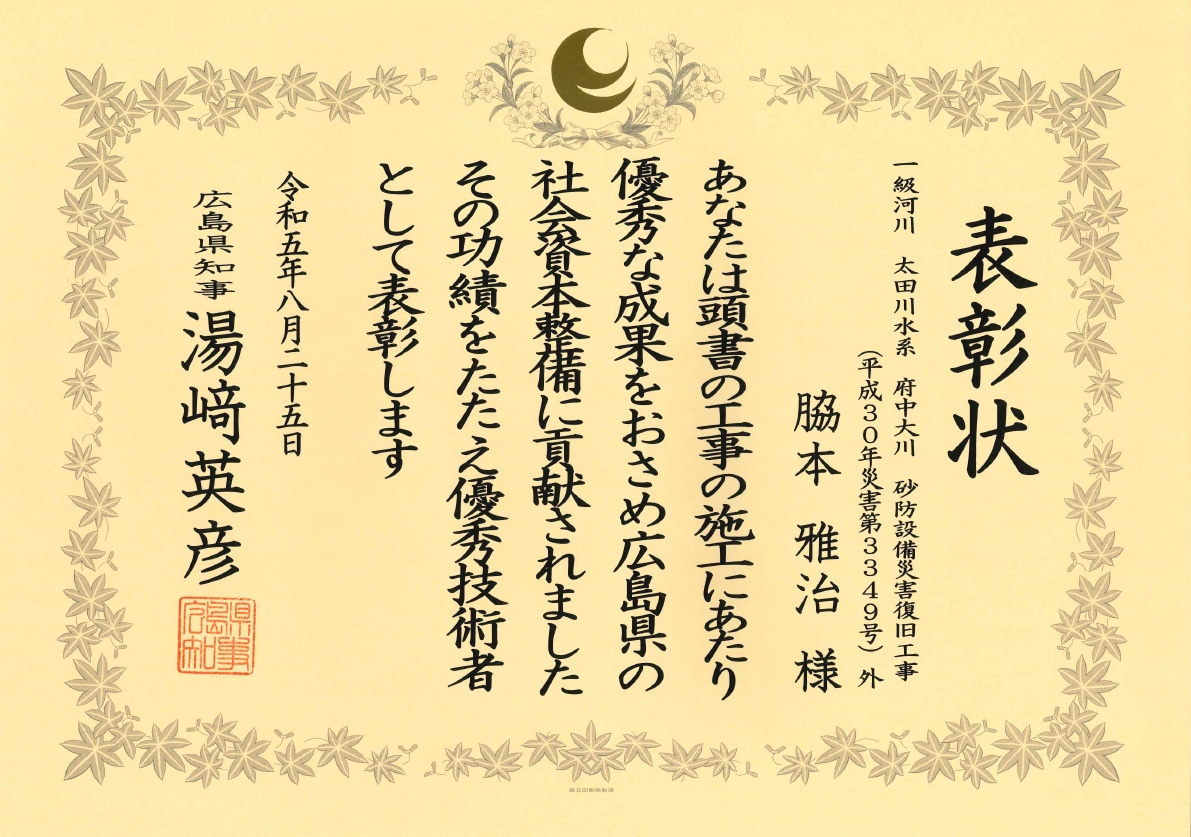 表彰状
一級河川　太田川水系　府中大川　砂防設備災害復旧工事
（平成３０年災害第３３４９号）外
脇本　雅治　様
あなたは頭書の工事の施工にあたり
優秀な成果をおさめ広島県の
社会資本整備に貢献されました
その功績をたたえ優秀技術者
として表彰します
令和五年八月二十五日
広島県知事　湯﨑英彦